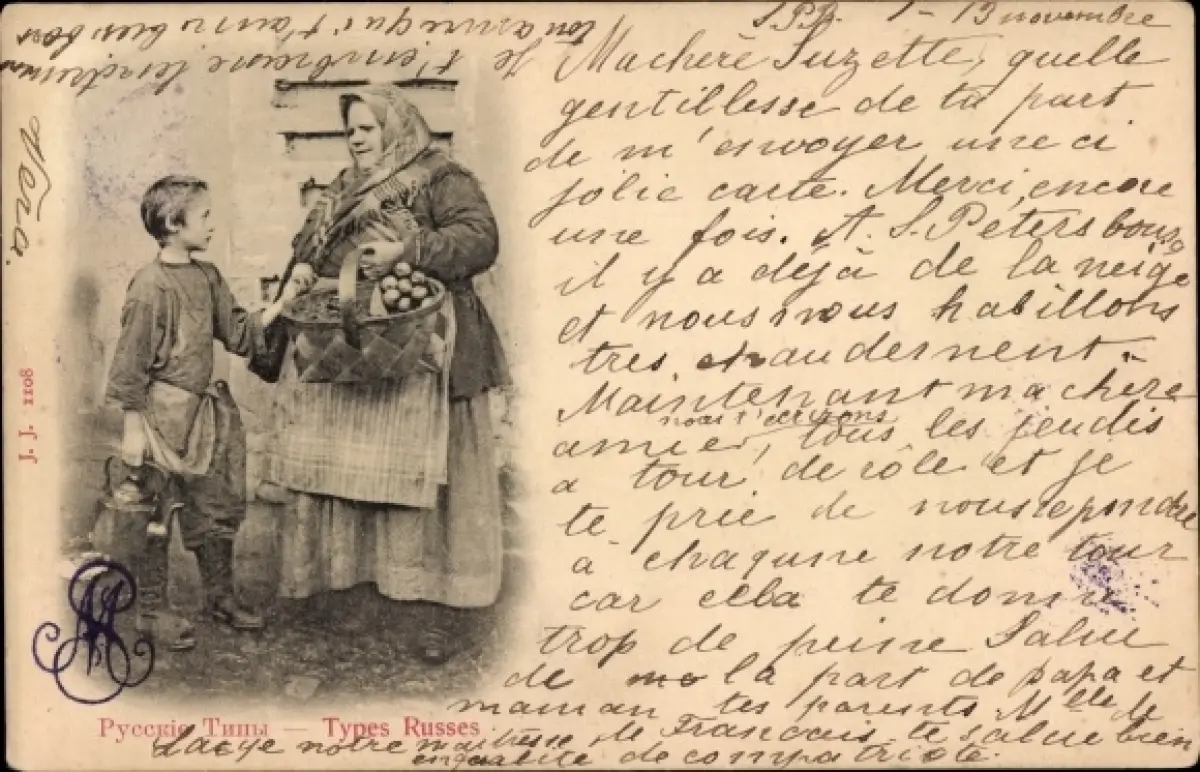 S.P.B. 1-13 novembre
Ma chère Suzette, quelle
gentillesse de ta part
de m'envoyer une ci
jolie carte. Merci, encore
une fois. A S. Pétersbourg
il y a déjà de la neige
et nous nous habillons
tres chaudernent.
Maintenant ma chère
nous t'ecrirons
amie, tous les jeudis
a tour de rôle et je
te prie de nous repondre
à chaqune notre tour
car cela te donne
trop de peine Salue
de la part de papa et
maman tes parents Mlle de
notre maitresse de Francais te salue bien
en qualité de compatriote.
Je t'embrasse tendrement
ton amie qui t'aime bien fort
Vera.
J. J. 1108
Русскіе Типы — Types Russes